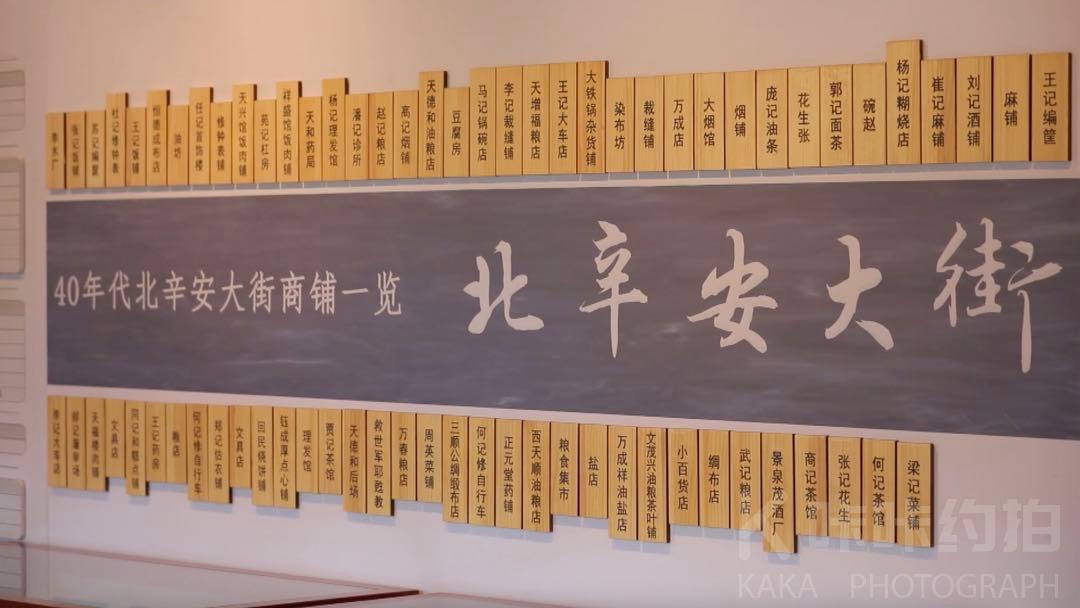 张记饭铺
苏记编筐
杜记修钟表
王记饭铺
恒德成布店
油坊
任记首饰楼
修钟表铺
天兴馆饭肉铺
苑记杠房
祥盛馆饭肉铺
天和药局
杨记理发馆
潘记诊所
赵记粮店
高记烟铺
天德和油粮店
豆腐房
马记锅碗店
李记裁缝铺
天增福粮店
王记大车店
大铁锅杂货铺
染布坊
裁缝铺
万成店
大烟馆
烟铺
庞记油条
花生张
郭记面茶
碗赵
杨记糊烧店
崔记麻铺
刘记酒铺
麻铺
王记编筐
40年代北辛安大街商铺一览
北辛安大街
李记大车店
天福楼肉铺
文具店
同记和糕点铺
王记药房
粮店
何记修自行车
郑记估衣铺
文具店
回民烧饼铺
钰成厚点心铺
理发馆
贾记茶馆
天德和后场
救世军耶稣教
万春粮店
周英菜铺
三顺公绸缎布店
何记修自行车
正元堂药铺
西天顺油粮店
粮食集市
盐店
万成祥油盐店
文茂兴油粮茶叶铺
小百货店
绸布店
武记粮店
景泉茂酒厂
商记茶馆
张记花生
何记茶馆
梁记菜铺
咔咔约拍
KAKA PHOTOGRAPH